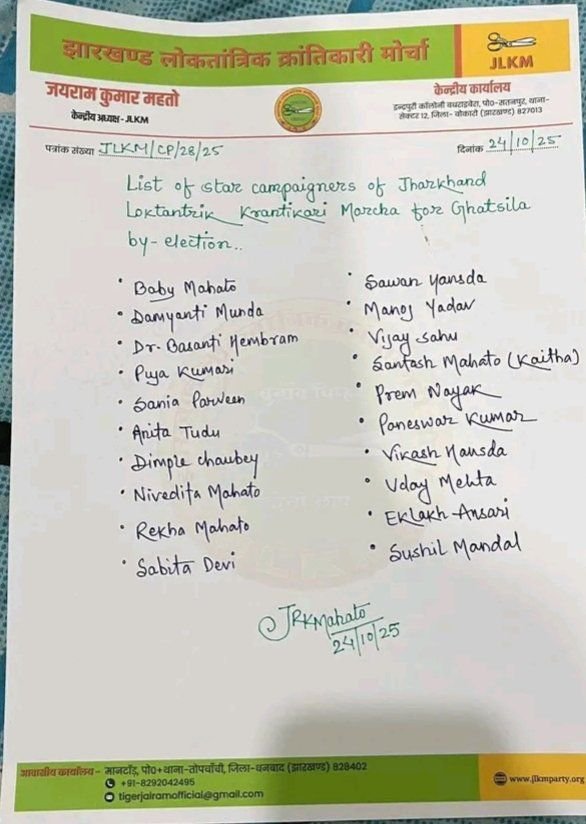 झारखण्ड लोकतांत्रिक क्रांतिकारी मोर्चा
JLKM
जयराम कुमार महतो
केन्द्रीय अध्यक्ष - JLKM
केन्द्रीय कार्यालय
इन्द्रपुरी कॉलोनी बधराइबेरा, पो०-सतनपुर, थाना-
सेक्टर 12, जिला- बोकारो (झारखण्ड) 827013
पत्रांक संख्या JLKM/CP/28/25
दिनांक 24/10/25
List of star campaigners of Jharkhand
Loktantrik Krantikari Morcha for Ghatsila
by-election..
• Baby Mahato
• Damyanti Munda
• Dr. Basanti Hembram
• Puja Kumari
• Sania Parween
• Anita Tudu
• Dimple chaubey
• Nivedita Mahato
• Rekha Mahato
• Sabita Devi
• Sawan Hansda
• Manoj Yadav
• Vijay Sahu
• Santash Mahato (Kaitha)
• Prem Nayak
• Paneswar Kumar
• Vikash Hansda
• Uday Mehta
• Eklakh Ansari
• Sushil Mandal
JRKMahato
24/10/25
आवासीय कार्यालय - मानटाँड़, पो०+थाना-तोपचाँची, जिला-धनबाद (झारखण्ड) 828402
+91-8292042495
tigerjairamofficial@gmail.com
www.jlkmparty.org